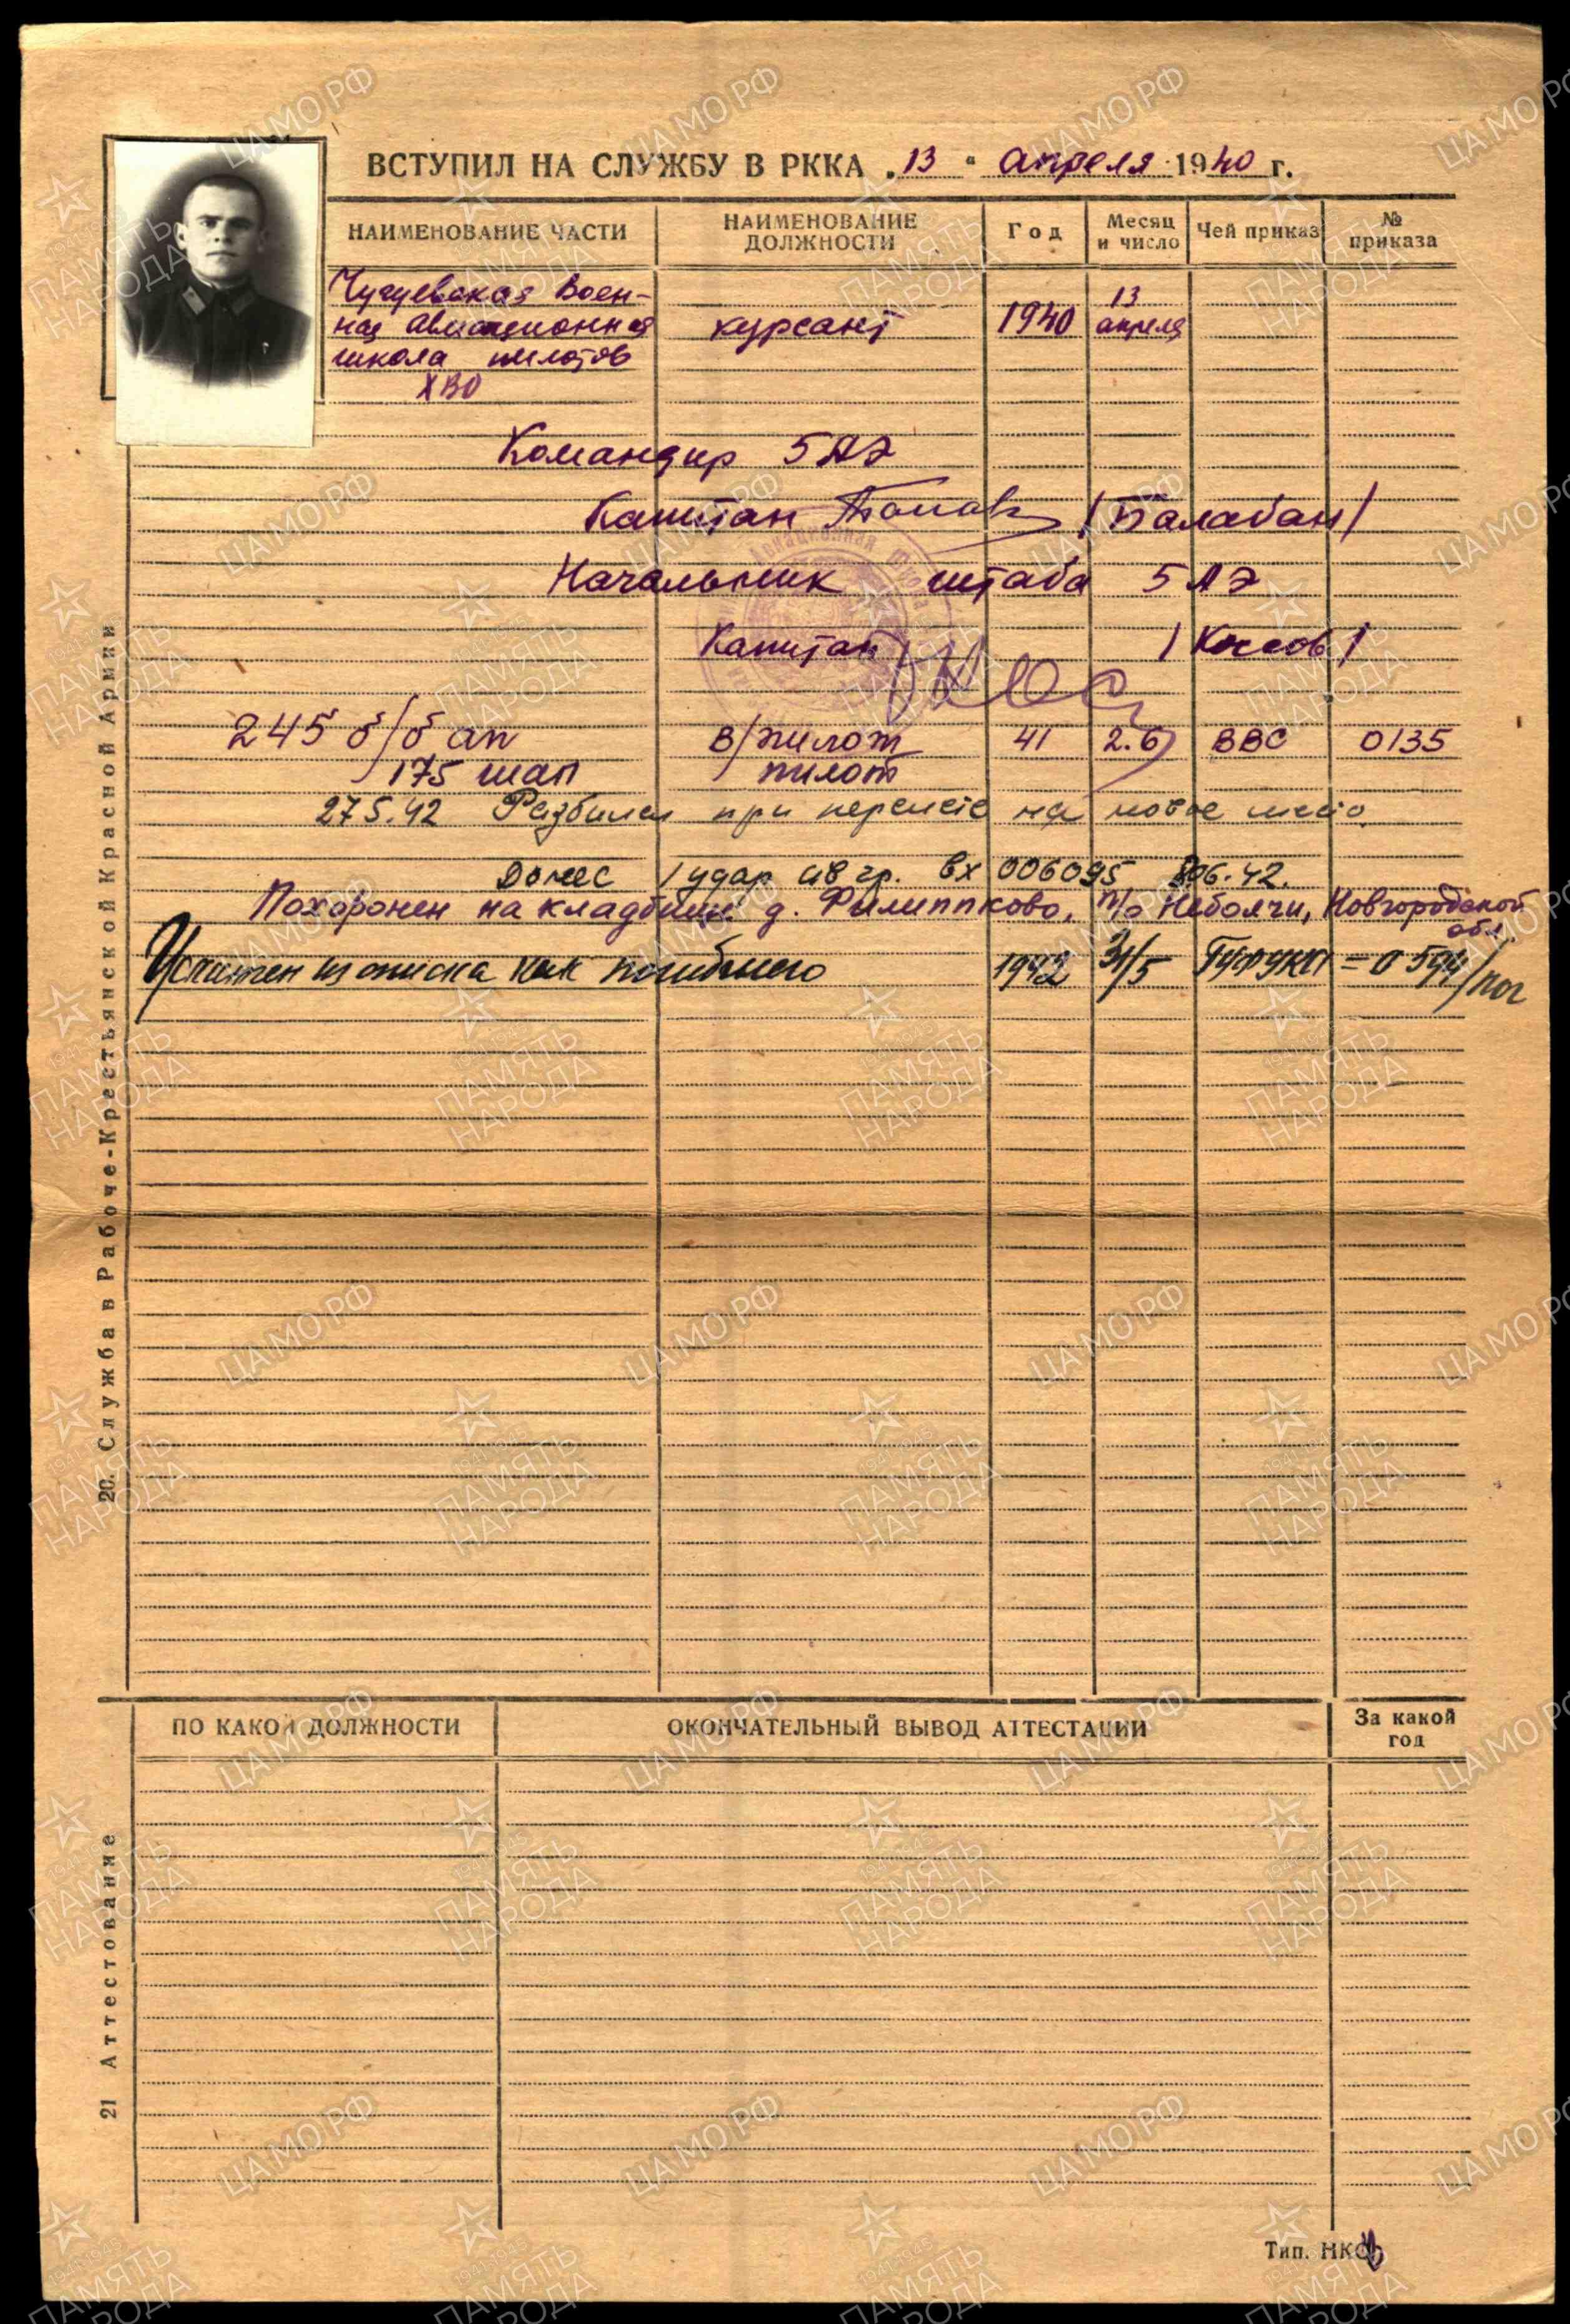 ВСТУПИЛ НА СЛУЖБУ В РККА „13“ апреля 1940 г.
НАИМЕНОВАНИЕ ЧАСТИ
НАИМЕНОВАНИЕ ДОЛЖНОСТИ
Год
Месяц и число
Чей приказ
№ приказа
Чугуевская Воен-
ная Авиационная
школа пилотов
ХВО
курсант
1940
13 апреля
Командир 5 АЭ
Капитан /Балабан/
Начальник штаба 5 АЭ
Капитан /Косов/
245 б/б ап в/пилот 41 2.6 ВВС 0135
175 шап пилот
27.5.42 Разбился при перелете на новое место
Донес 1 удар ав гр. вх 006095 8.06.42.
Похоронен на кладбище д. Филиппково, п/о Неболчи, Новгородской
обл.
Исключен из списка как погибшего 1942 31/5 ГУФУКА = 0594/пог
20. Служба в Рабоче-Крестьянской Красной Армии
ПО КАКОЙ ДОЛЖНОСТИ
ОКОНЧАТЕЛЬНЫЙ ВЫВОД АТТЕСТАЦИИ
За какой год
21 Аттестование
Тип. НКО
ЦАМО.РФ
1941-1945
ПАМЯТЬ
НАРОДА